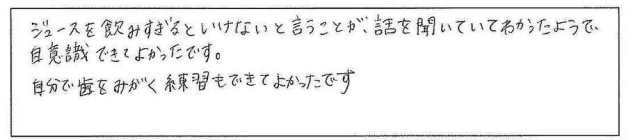 ジュースを飲みすぎるといけないと言うことが、話を聞いていてわかったようで、
自意識できてよかったです。
自分で歯をみがく練習もできてよかったです